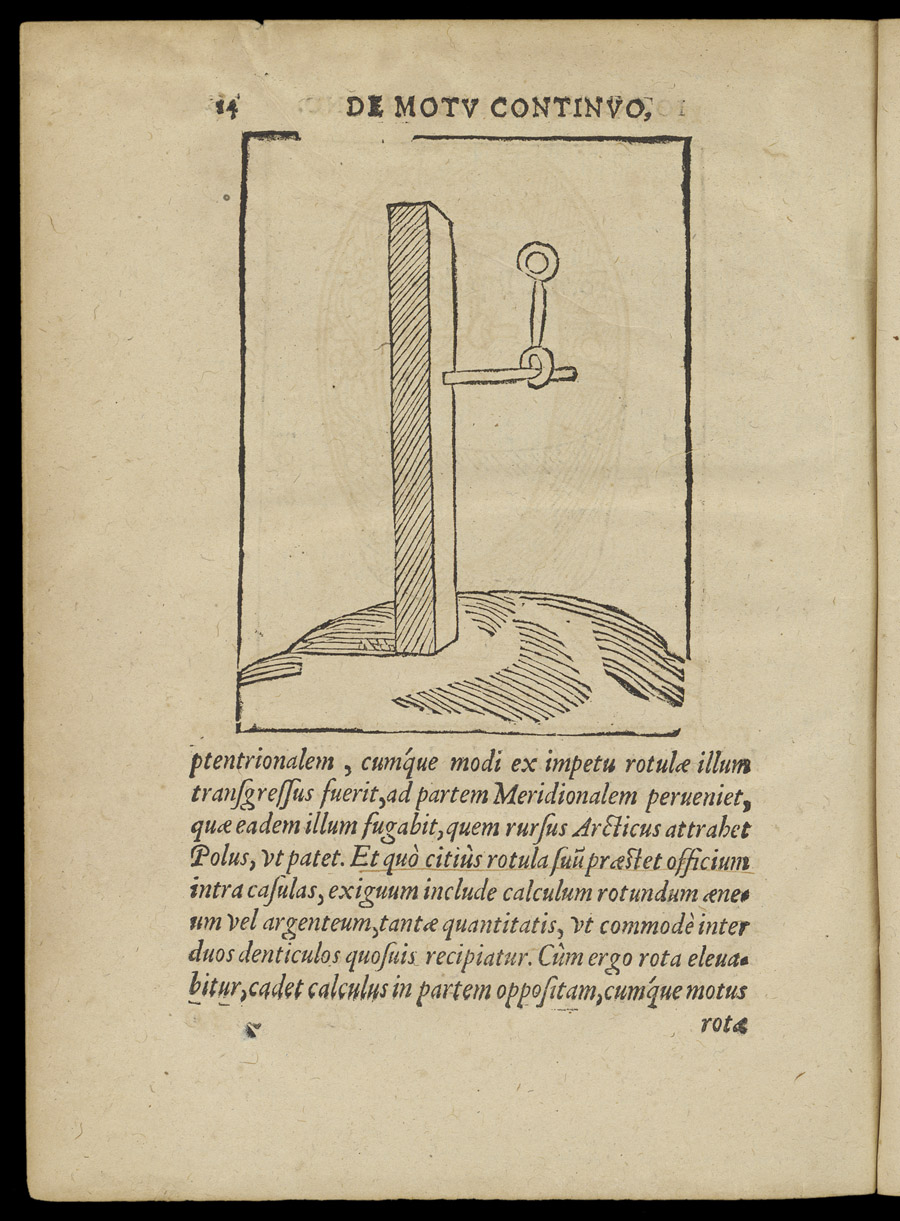 14 DE MOTV CONTINVO,
ptentrionalem , cumq́ue modi ex impetu rotulæ illum
tranſgreſſus fuerit,ad partem Meridionalem perueniet,
quæ eadem illum fugabit,quem rurſus Arcticus attrahet
Polus, vt patet. Et quò citiùs rotula ſuũ præſtet officium
intra caſulas, exiguum include calculum rotundum æne-
um vel argenteum,tantæ quantitatis, vt commodè inter
duos denticulos quoſuis recipiatur. Cùm ergo rota eleua-
bitur,cadet calculus in partem oppoſitam,cumq́ue motus
rotæ